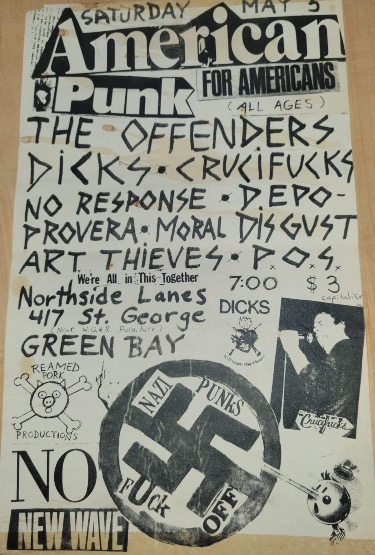 SATURDAY MAY 5
American
Punk
FOR AMERICANS
(ALL AGES)
THE OFFENDERS
DICKS • CRUCIFUCKS
NO RESPONSE • DEPO-
PROVERA • MORAL DISGUST
ART THIEVES • P.O.S.
We're All in This Together
7:00 $3
capitalism
Northside Lanes
417 St. George
GREEN BAY
DICKS
Crucifucks
REAMED
PORK
PRODUCTIONS
NAZI PUNKS
FUCK OFF
NO
NEW WAVE